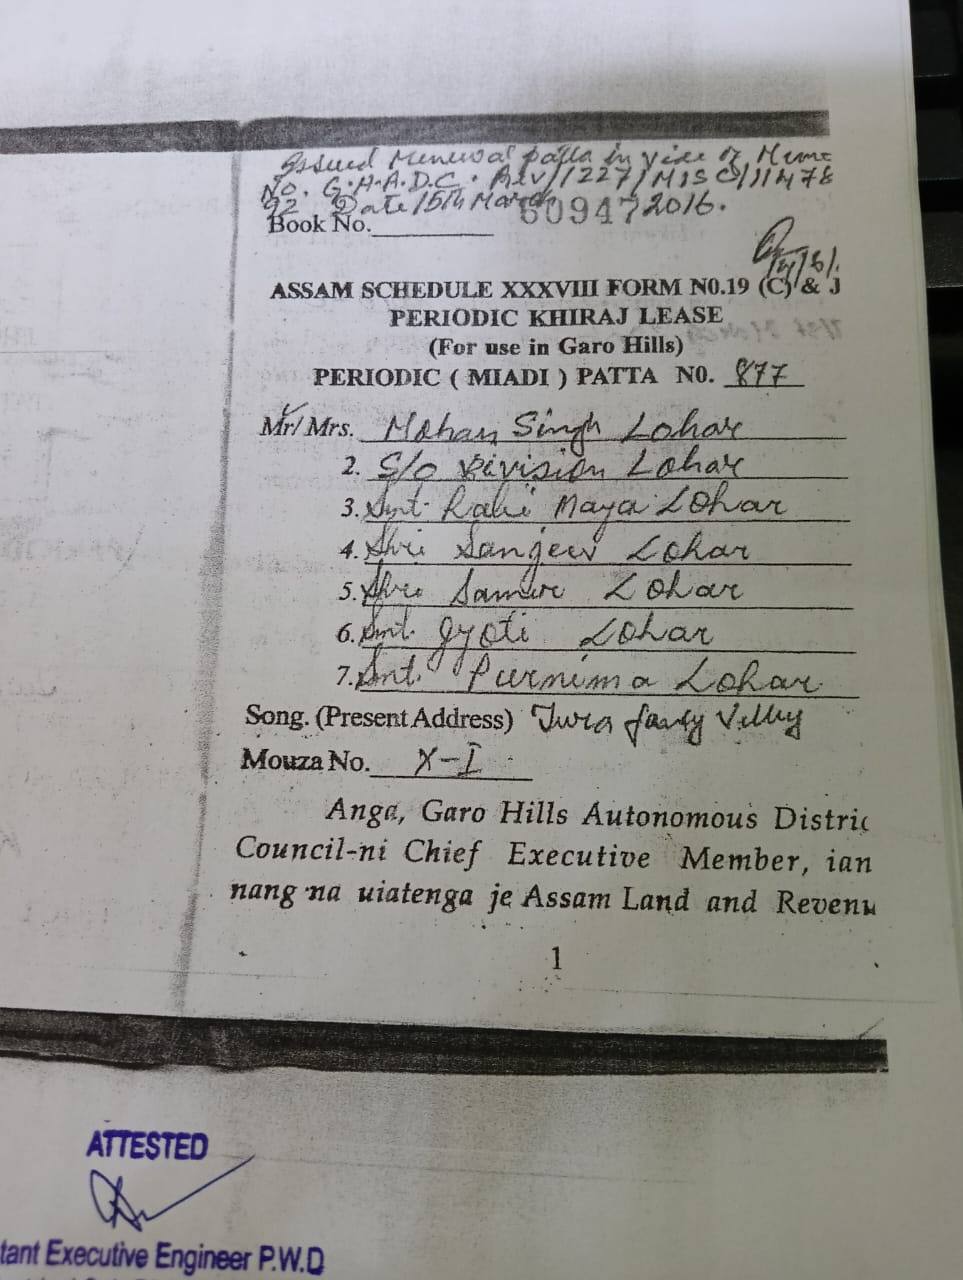 Issued Renewal patta in view of Memo
No. G.H.A.D.C. Rev//227/MISC/11478
92 Date 15th March 2016.
Book No. 60947
ASSAM SCHEDULE XXXVIII FORM N0.19 (C) & J
PERIODIC KHIRAJ LEASE
(For use in Garo Hills)
PERIODIC ( MIADI ) PATTA N0. 877
Mr/ Mrs. Mohan Singh Lohar
2. S/o Division Lohar
3. Smt. Maya Lohar
4. Shri Sangeev Lohar
5. Shri Lohar
6. Smt. Jyoti Lohar
7. Smt. Purnima Lohar
Song. (Present Address) Tura
Mouza No. X-I
Anga, Garo Hills Autonomous Distric
Council-ni Chief Executive Member, ian
nang na uiatenga je Assam Land and Revenu
1
ATTESTED
tant Executive Engineer P.W.D